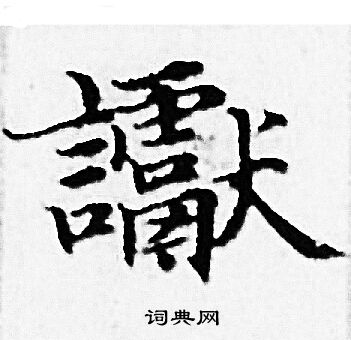 讞
词典网